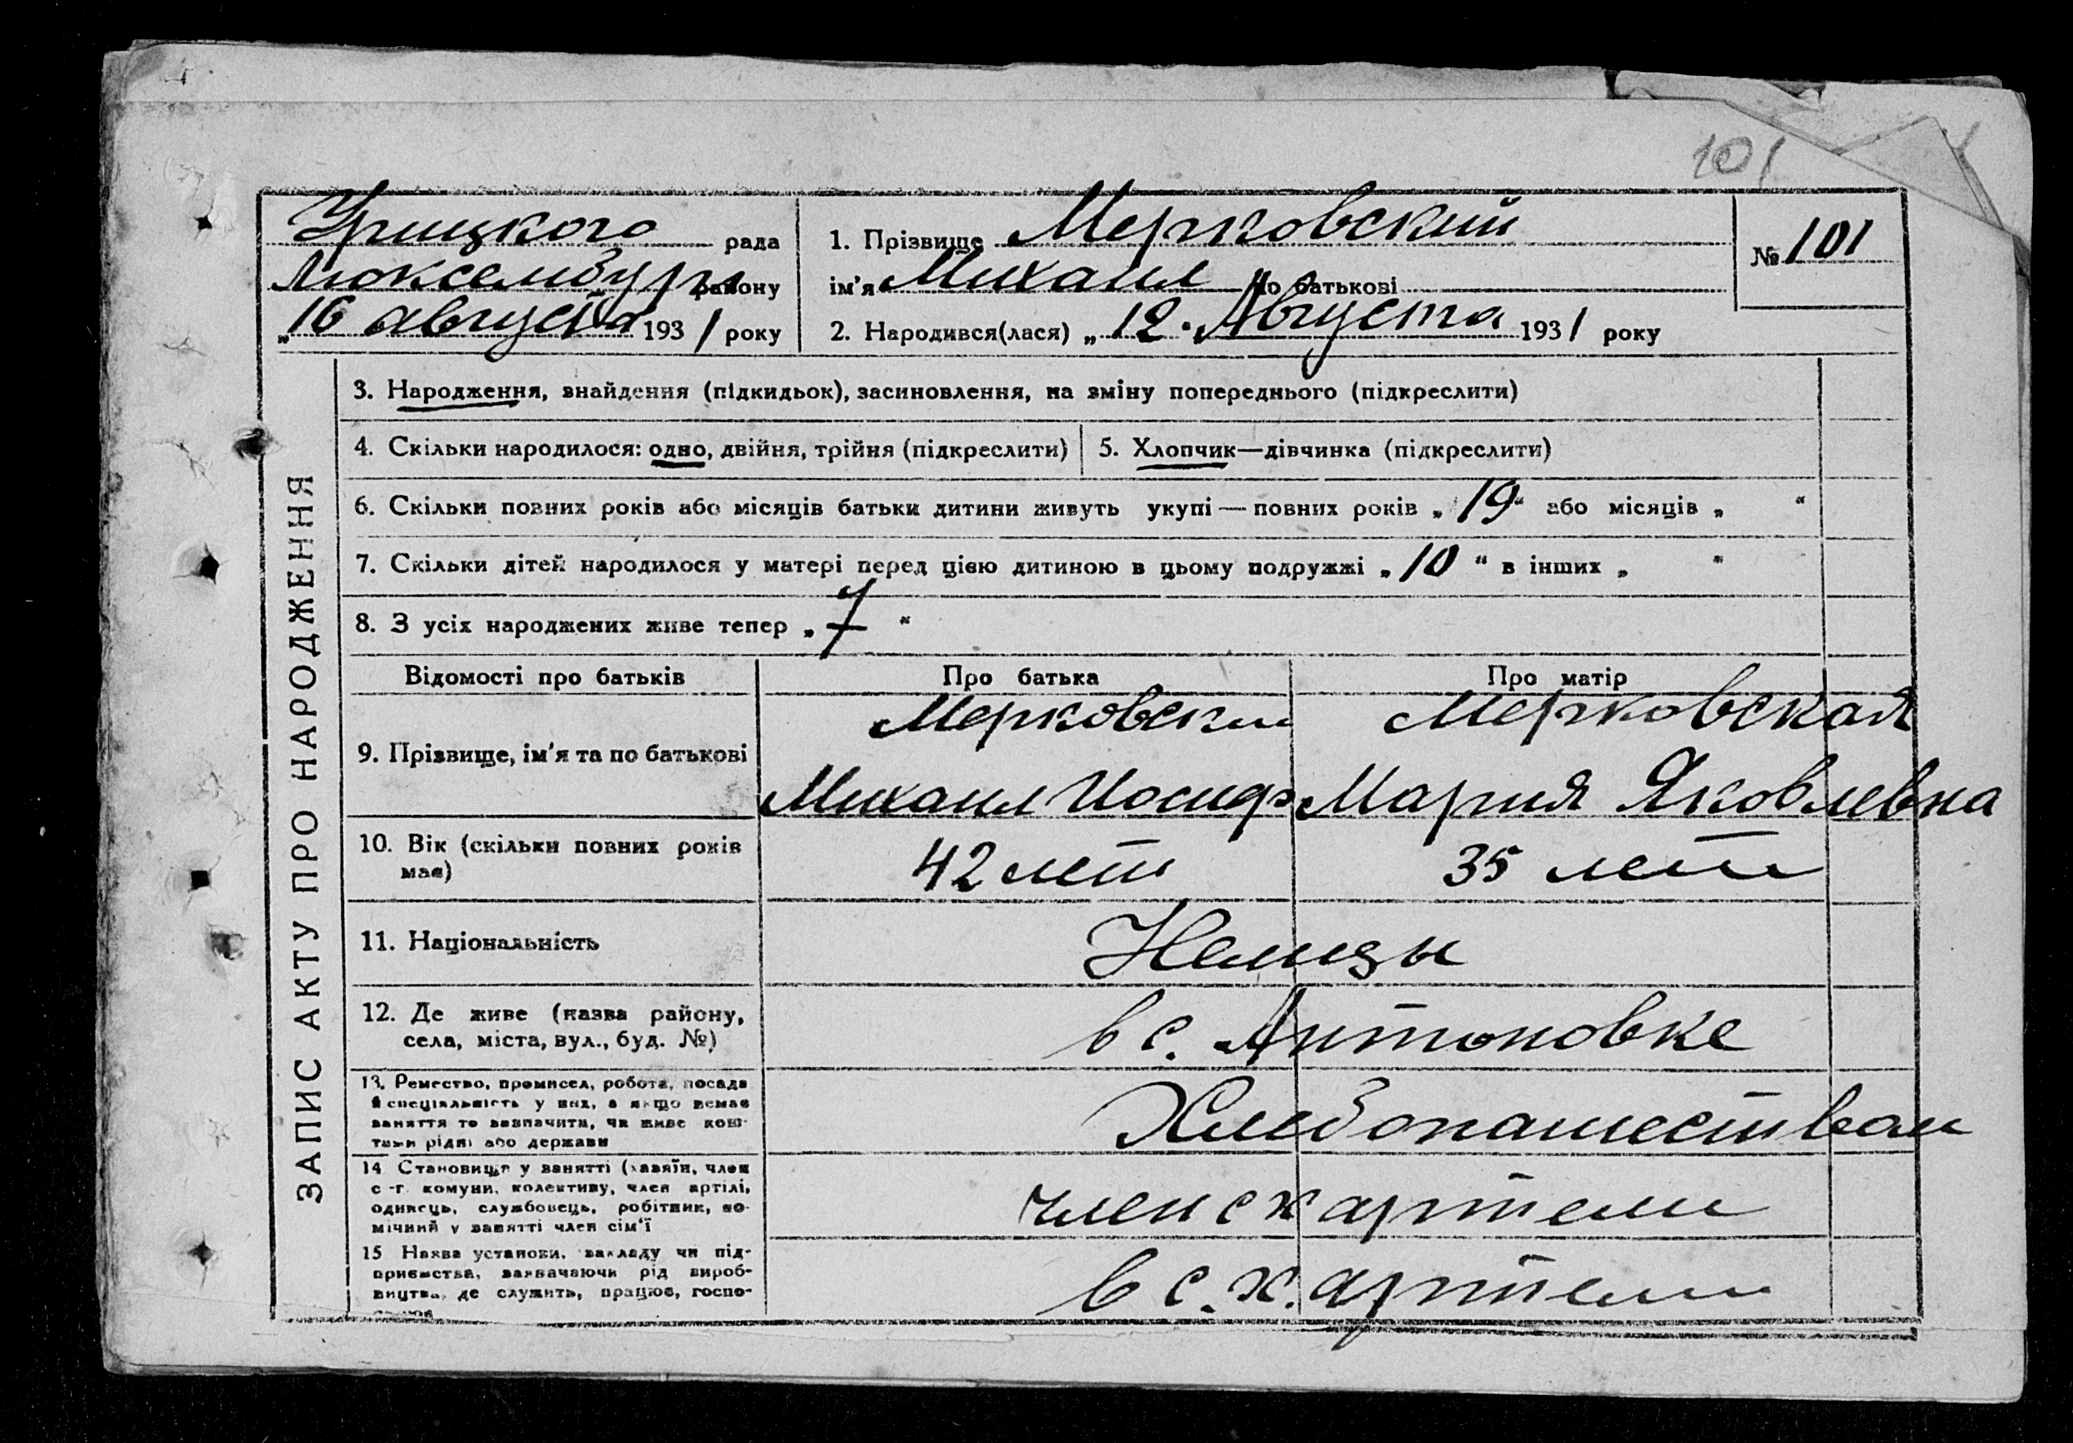 101
Урицкого рада
Люксембург району
„16 августа 1931 року
1. Прізвище Мерковский
ім'я Михаил по батькові
2. Народився(лася) „12 Августа 1931 року
№ 101
ЗАПИС АКТУ ПРО НАРОДЖЕННЯ
3. Народження, знайдення (підкидьок), засиновлення, на зміну попереднього (підкреслити)
4. Скільки народилося: одно, двійня, трійня (підкреслити)
5. Хлопчик—дівчинка (підкреслити)
6. Скільки повних років або місяців батьки дитини живуть укупі — повних років „19“ або місяців „ “
7. Скільки дітей народилося у матері перед цією дитиною в цьому подружжі „10“ в інших „ “
8. З усіх народжених живе тепер „7“
Відомості про батьків
Про батька
Про матір
9. Прізвище, ім'я та по батькові
Мерковский
Михаил Иосиф
Мерковская
Мария Яковлевна
10. Вік (скільки повних років
має)
42 лет
35 лет
11. Національність
Немцы
12. Де живе (назва району,
села, міста, вул., буд. №)
в с. Антоновке
13. Ремество, промисел, робота, посада
й спеціяльність у них, а якщо немає
заняття то зазначити, чи живе кош-
тами рідні або держави
Хлебопашеством
14 Становище у занятті (хазяїн, член
с.-г. комуни, колективу, член артілі,
одинець, службовець, робітник, по-
мічний у занятті член сім'ї
член с х артели
15 Назва установи, закладу чи під-
приємства, зазначаючи рід вироб-
ництва, де служить, працює, госпо-
в с. х. артели